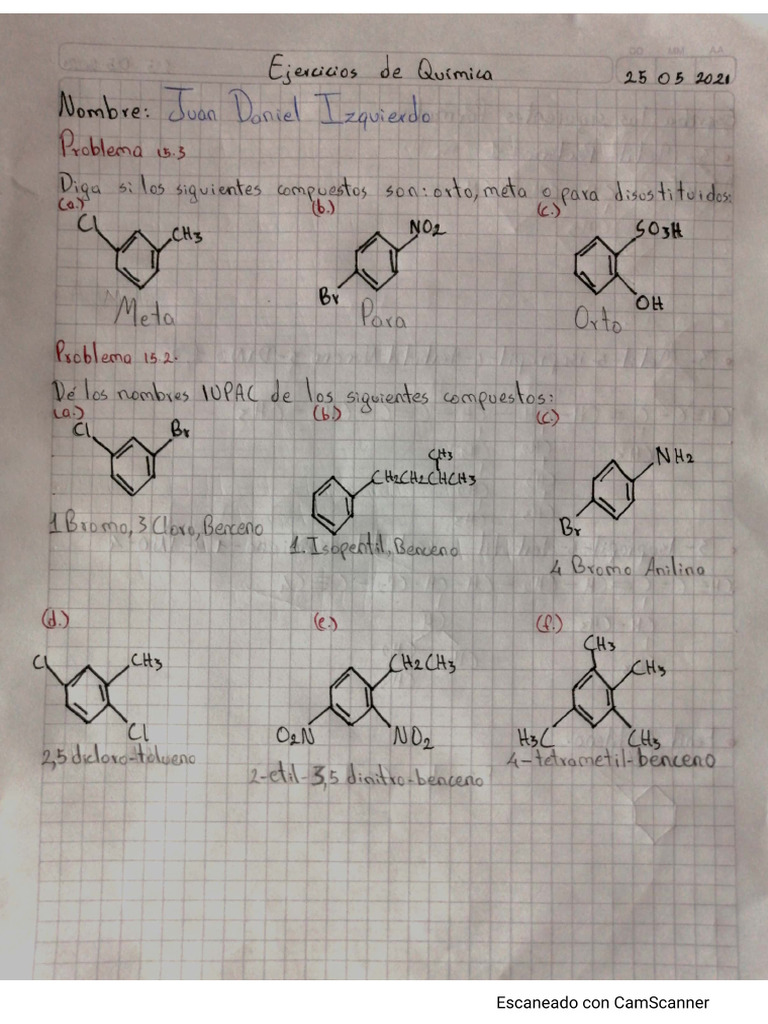 Ejercicios de Química 25 05 2021
Nombre: Juan Daniel Izquierdo
Problema 15.3
Diga si los siguientes compuestos son: orto, meta o para disustituidos:
(a.) (b.) (c.)
Cl CH3 NO2 SO3H
Br OH
Meta Para Orto
Problema 15.2.
Dé los nombres IUPAC de los siguientes compuestos:
(a.) (b.) (c.)
Cl Br CH3 NH2
CH2CH2CHCH3
Br
1 Bromo, 3 Cloro, Benceno 1. Isopentil, Benceno 4 Bromo Anilina
(d.) (e.) (f.)
CH3
Cl CH3 CH2CH3 CH3
Cl O2N NO2 H3C CH3
2,5 dicloro-tolueno 2-etil-3,5 dinitro-benceno 4-tetrametil-benceno
Escaneado con CamScanner